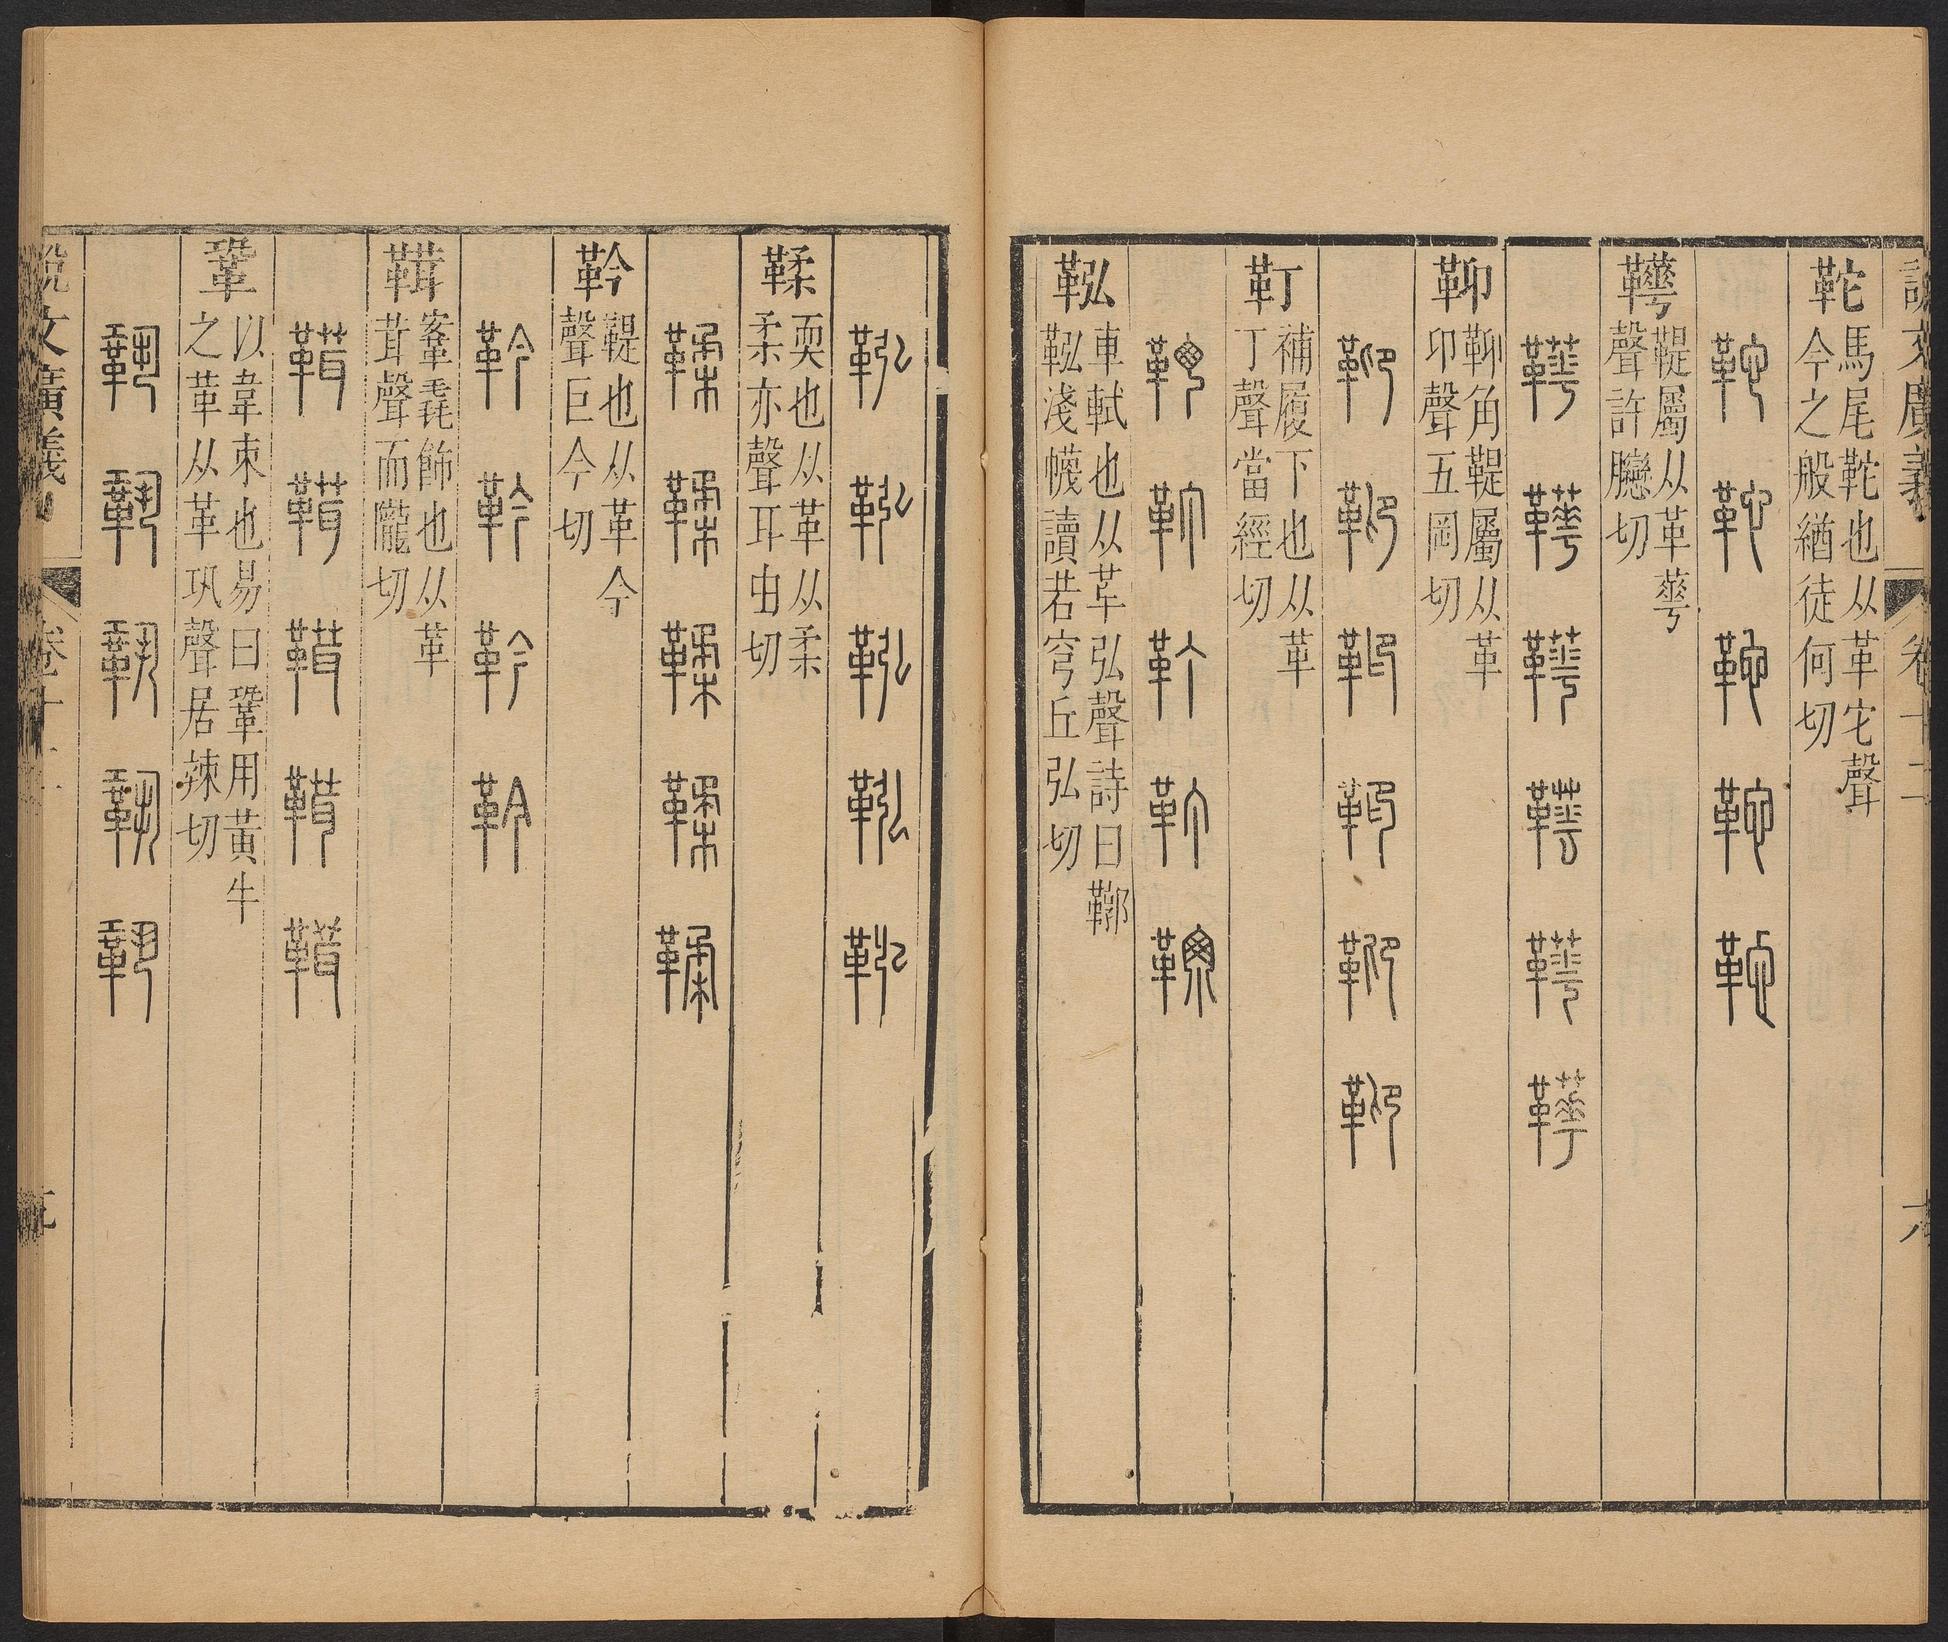 說文廣義 卷十二
馬尾鞁也从革它聲
今之般緧徒何切
鞾
鞮屬从革蕐
聲許
鞾鞾鞾鞾鞾鞾
䩕
䩕角鞮屬从革
卬聲五岡切
䩕䩕䩕䩕䩕䩕
靪
補履下也从革
丁聲當經切
靪靪靪靪靪
鞃
車軾也从革弘聲詩曰鞹
鞃淺幭讀若穹丘弘切
鞃鞃鞃鞃鞃
鞣
耎也从革从柔
柔亦聲耳由切
鞣鞣鞣鞣鞣
靲
鞮也从革今
聲巨今切
靲靲靲靲
䩸
鞌毳飾也从革
茸聲而隴切
䩸䩸䩸䩸䩸
鞏
以韋束也易曰鞏用黃牛
之革从革巩聲居竦切
鞏鞏鞏鞏鞏
說文廣義 卷十二